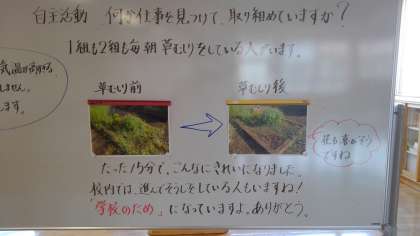 自主活動 何か仕事を見つけて、取り組めていますか?
1組も2組も毎朝草むしりをしている人がいます。
草むしり前
草むしり後
花も喜んでそう
ですね
たった15分で、こんなにきれいになりました。
校内では、進んでそうじをしている人もいますね!
「学校のため」になっていますよ。ありがとう。
ません。
します。